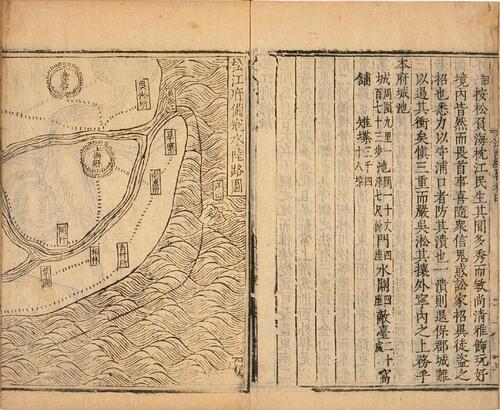 按松負海枕江民生其間多秀而敏尚清雅飾玩好
境內皆然而畏首事喜隨衆信鬼惑訟家招興徒盜之
招也悉力以守浦口者防其潰也一潰則退保郡城難
以遏其衝矣慎三重而嚴吳淞其攘外寧內之上務乎
本府城池
城周圍九里一百七十三步池丈深七尺餘門四座水關四座敵臺二十座窩
舖雉堞二千四十八垛
松江府備水陸路圖
洋山
閔行